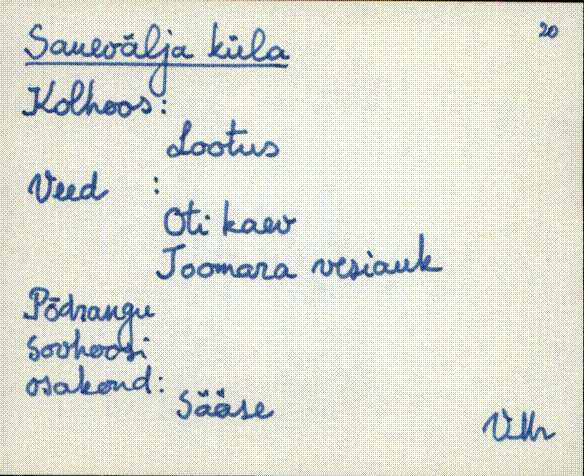 20
Sauevälja küla
Kolhoos:
Lootus
Veed :
Oti kaev
Joomara vesiauk
Põdrangu
sovhoosi
osakond:
Sääse
VMr